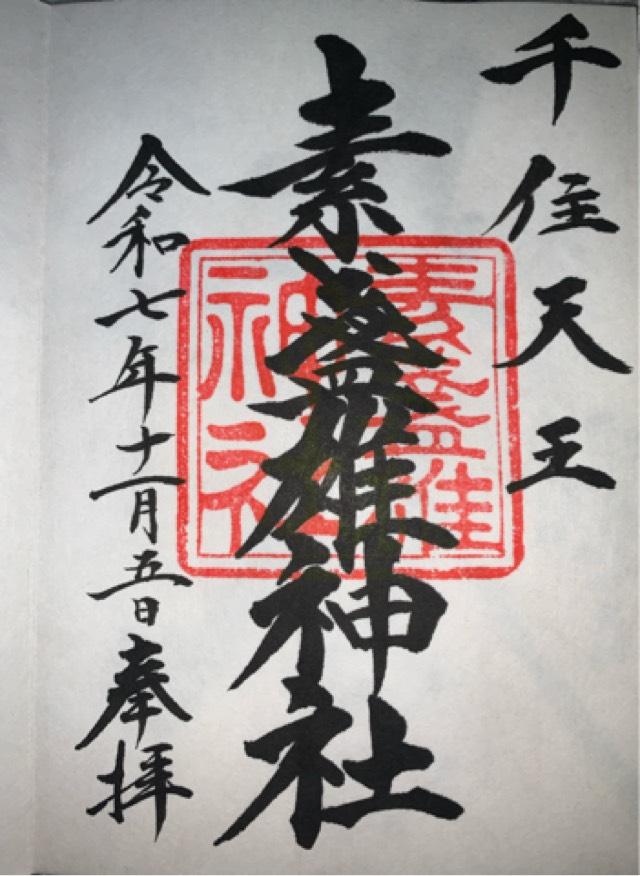 千住天王
素盞雄神社
令和七年十一月五日奉拝
素盞雄
神社